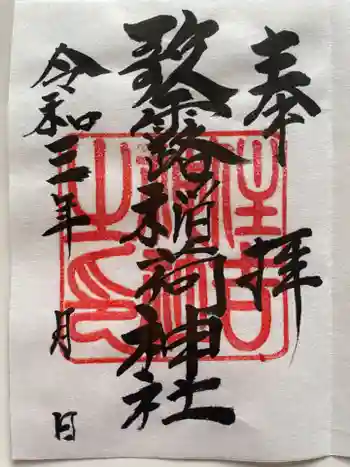 奉拝
露稲荷神社
令和三年 月 日